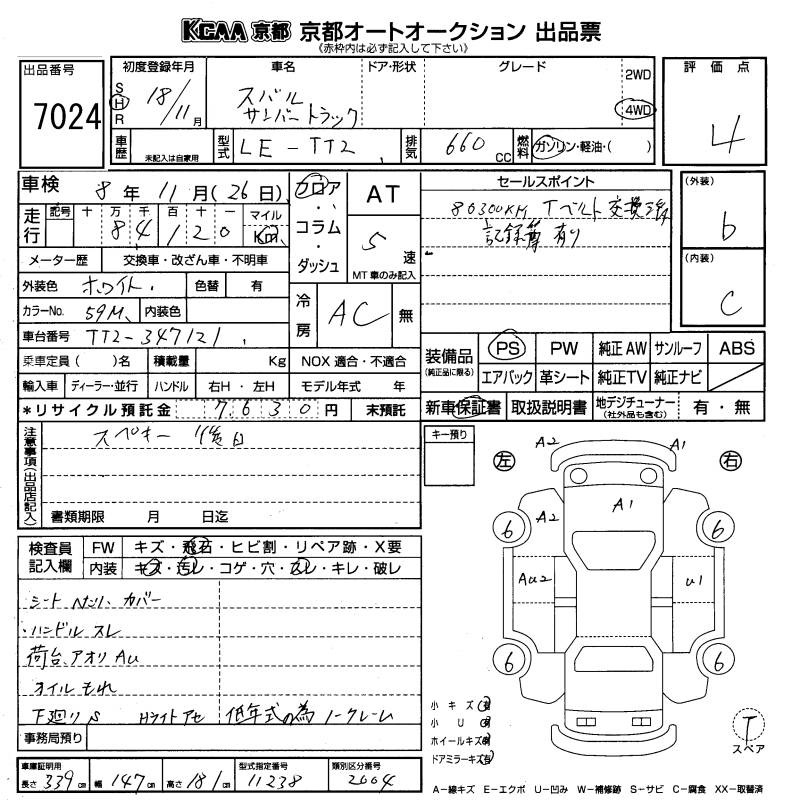 KCAA 京都 京都オートオークション 出品票
《赤枠内は必ず記入して下さい》
出品番号 7024
初度登録年月 S H R 18/11月
車名 スバル サンバートラック
ドア・形状 グレード 2WD 4WD
評価点 4
車歴 未記入は自家用 型式 LE-TT2 排気 660 CC 燃料 ガソリン・軽油・( )
車検 8年 11月(26日)
フロア・コラム・ダッシュ
AT 5速 MT車のみ記入
セールスポイント
80300KM Tベルト交換済
記録簿有り
(外装) b
(内装) C
走行 記号 十 万 千 百 十 一 マイル Km
8 4 1 2 0
メーター歴 交換車・改ざん車・不明車
外装色 ホワイト 色替 有
カラーNo. 59M 内装色
冷房 AC 無
車台番号 TT2-347121
乗車定員( )名 積載量 Kg NOX 適合・不適合
輸入車 ディーラー・並行 ハンドル 右H・左H モデル年式 年
*リサイクル預託金 7630円 未預託
装備品 (純正品に限る) PS PW 純正AW サンルーフ ABS
エアバック 革シート 純正TV 純正ナビ
新車保証書 取扱説明書 地デジチューナー (社外品も含む) 有・無
注意事項(出品店記入)
スペキー 後日
書類期限 月 日迄
キー預り
左 右
A2 A1
A1
A2
Au2 U1
6 6
6 6
検査員記入欄 FW キズ・飛石・ヒビ割・リペア跡・X要
内装 キズ・汚レ・コゲ・穴・スレ・キレ・破レ
シート ヘタリ、カバー
・ハンドル スレ
荷台、アオリ Au
オイルもれ
下廻り S Hライトアセ 低年式の為ノークレーム
事務局預り
小キズ 有
小U 有
ホイールキズ 有
ドアミラーキズ 有
T スペア
車庫証明用 長さ 339cm 幅 147cm 高さ 181cm
型式指定番号 11238
類別区分番号 2004
A-線キズ E-エクボ U-凹み W-補修跡 S-サビ C-腐食 XX-取替済